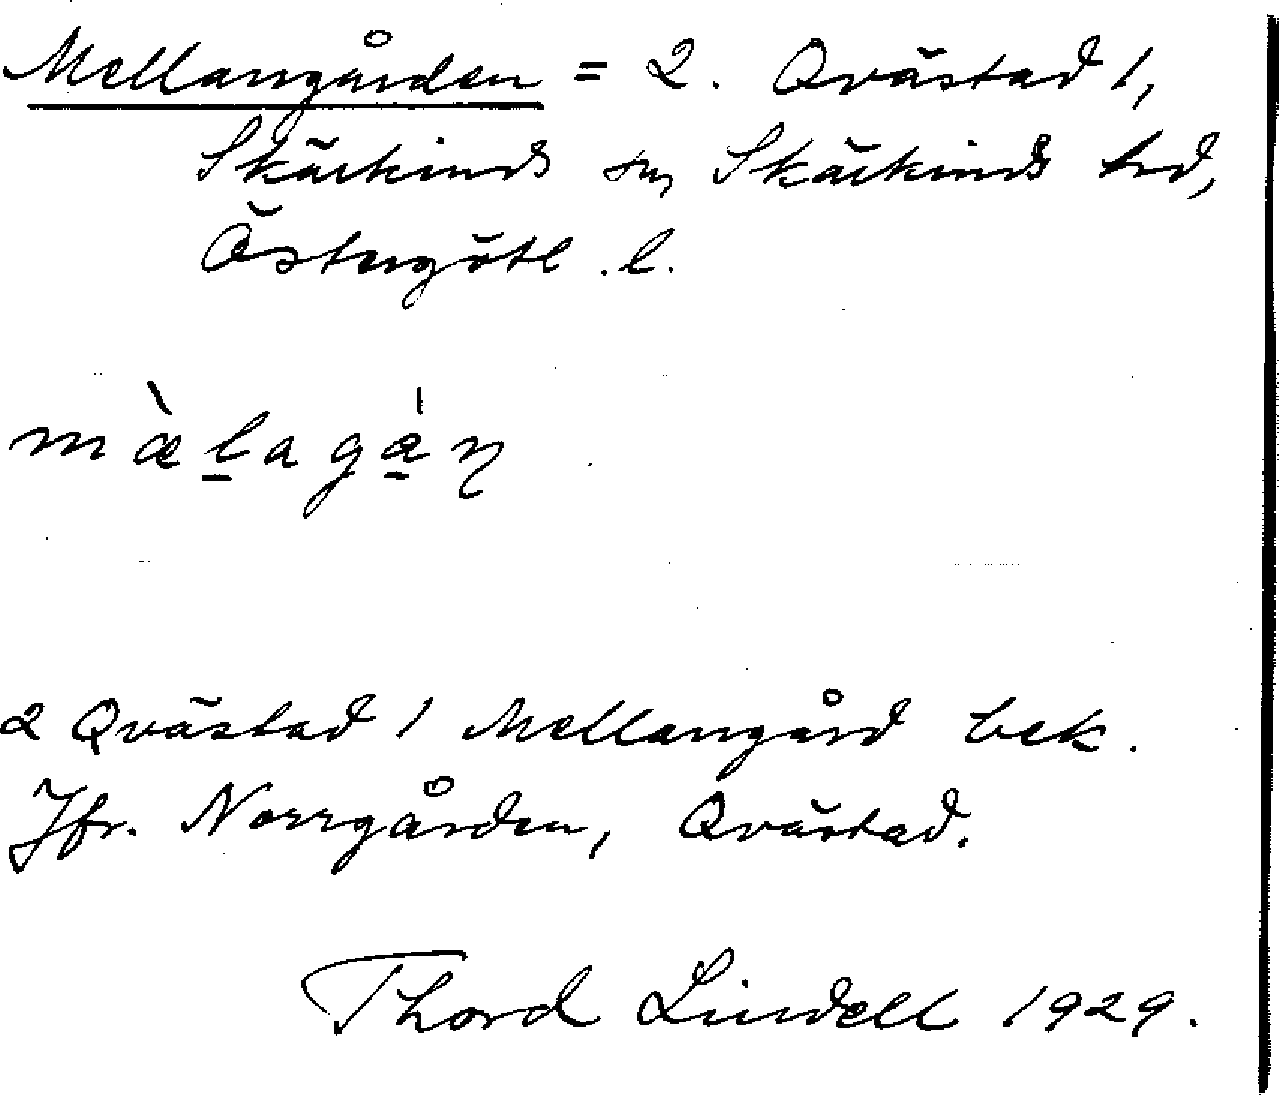 Mellangården = 2. Qvästad 1,
Skärkinds sn, Skärkinds hd,
Östergötl. l.
mæ̀l̠agá̠n
2 Qvästad 1 Mellangård bek.
Jfr. Norrgården, Qvästad.
Thord Lindell 1929.